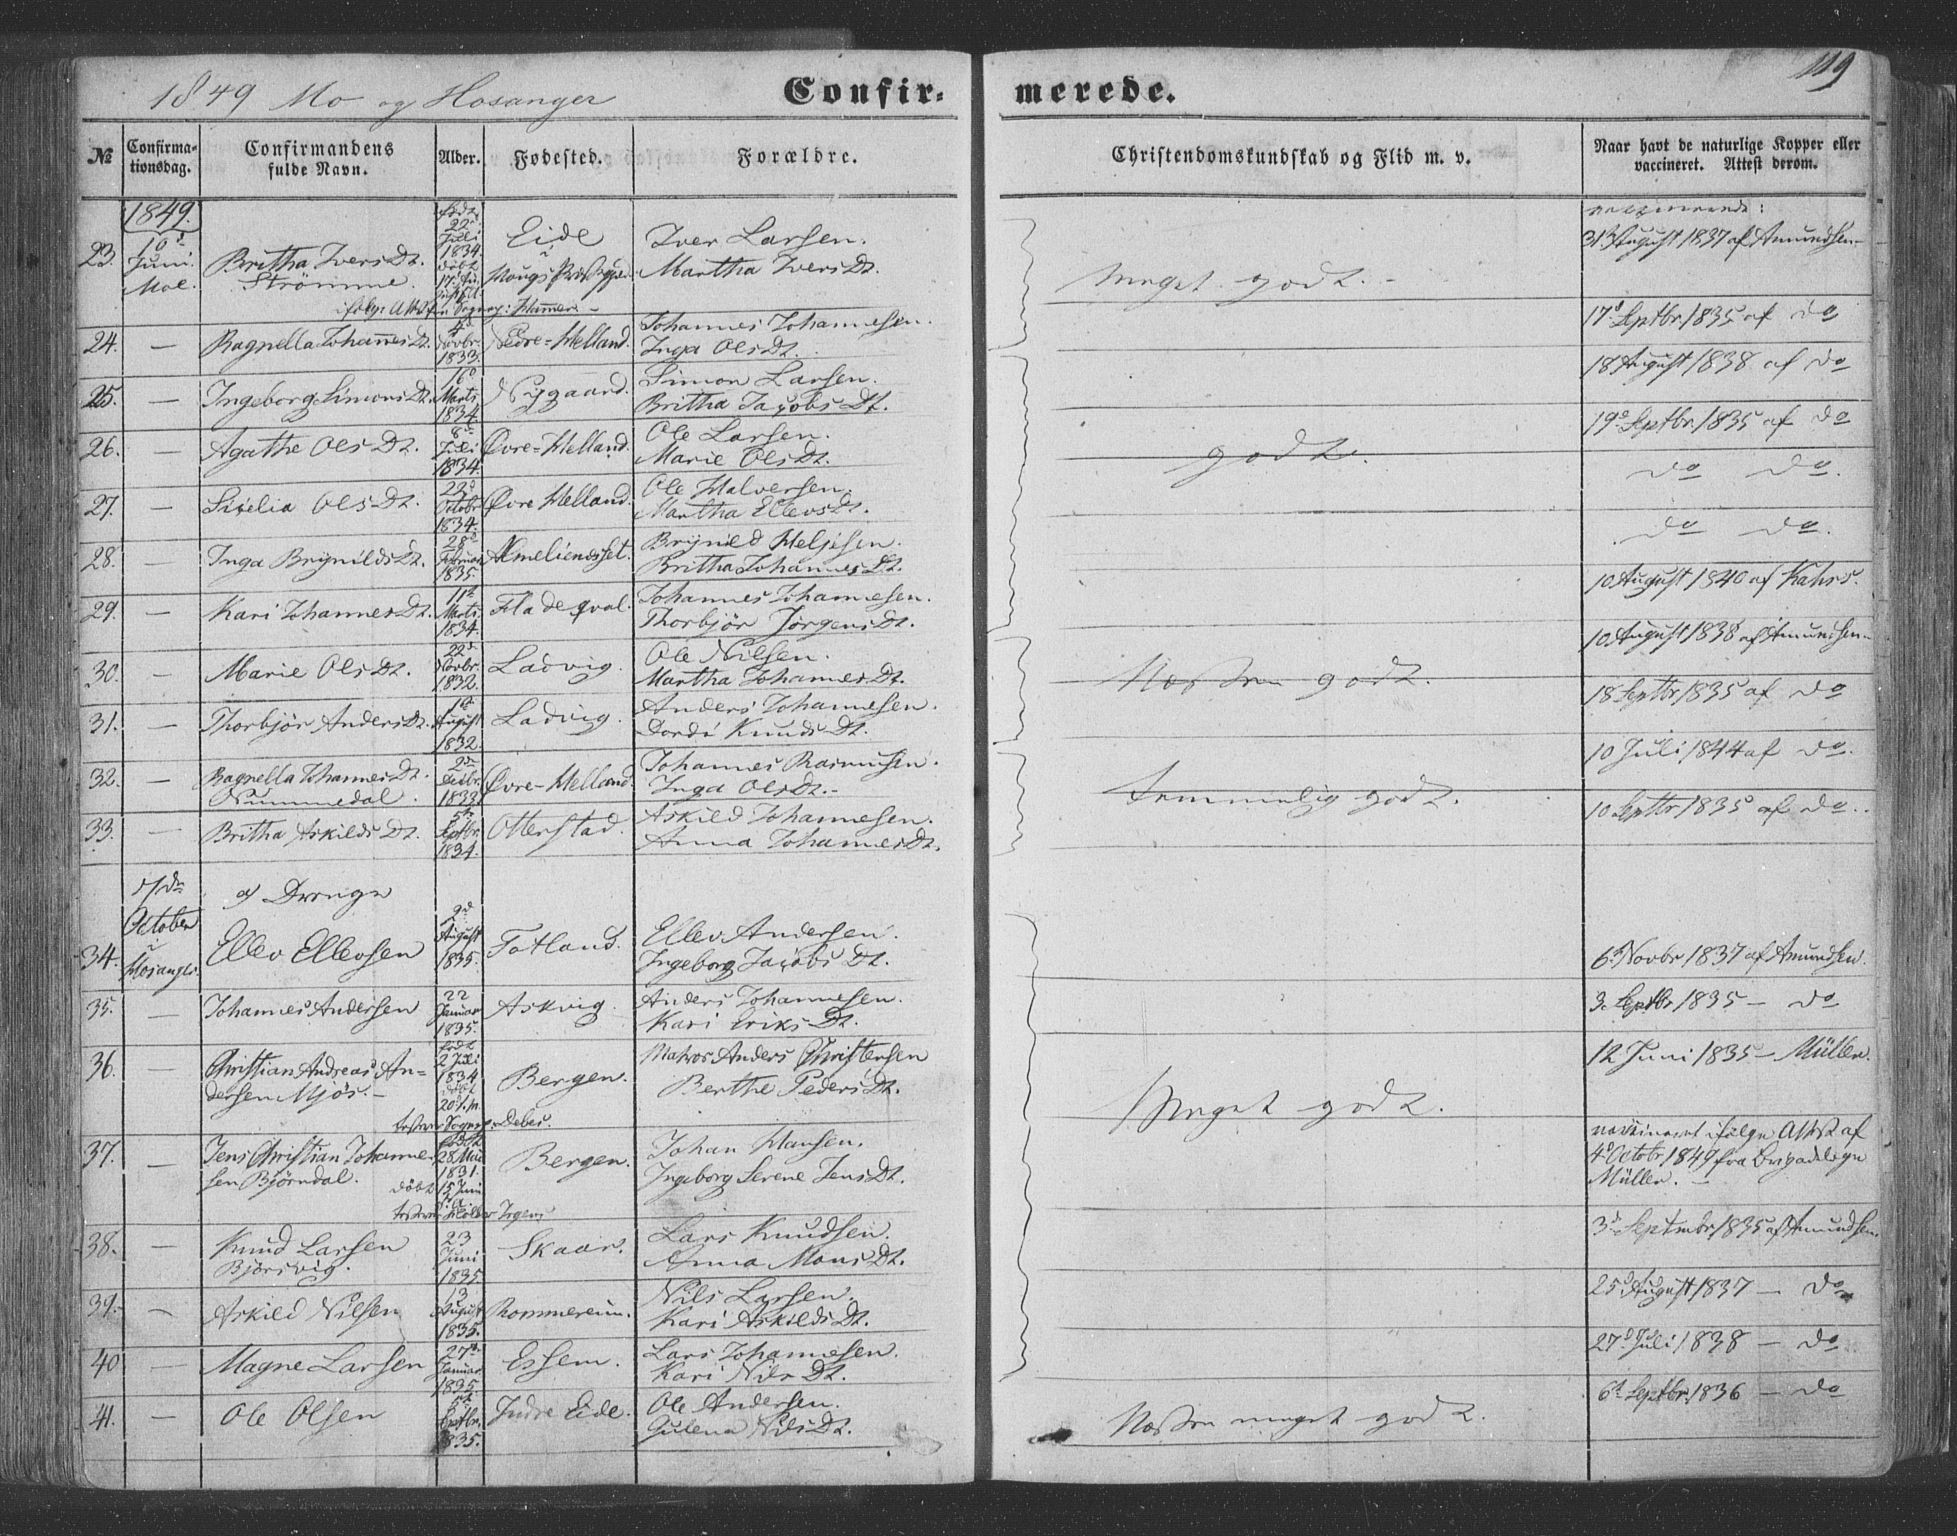 1849 Mo og Hosanger
Confir-
merede.
119
No
Confirma-
tionsdag.
Confirmandens
fulde Navn.
Alder.
Fødested.
Forældre.
Christendomskundskab og Flid m. v.
Naar havt de naturlige Kopper eller
vaccineret. Attest derom.
1849.
23. 10d Juni Moe. Britha Ivers Dt. Strömme. født 22d Juli 1834. döbt Eide i Iver Larsen. Martha Ivers Dt. Meget godt. - 31 August 1837 af Amundsen
24. — Ragnella Johannes Dt. 4d Novbr. 1833. Nedre-Helland. Johannes Johannesen. Inga Ols Dt. 17d Septbr. 1835 af do
25. — Ingeborg Simons Dt. 16d Marts 1834. Nygaard. Simon Larsen. Britha Jacobs Dt. 18 August 1838 af do
26. — Agathe Ols Dt. 8d Juli 1834. Øvre-Helland. Ole Larsen. Marie Ols Dt. godt. 19d Septbr. 1835 af do
27. — Sicelia Ols Dt. 23d Octobr 1834. Øvre Helland. Ole Halversen. Martha Ellevs Dt. do do.
28. — Inga Brynilds Dt. 28d Februar 1835. Ameliendsset. Brynild Heljesen. Britha Johannes Dt. do do.
29. — Kari Johannes Dt. 11d Marts 1834. Fladeqval. Johannes Johannesen. Thorbjör Jörgens Dt. 10 August 1840 af Kahrs.
30. — Marie Ols Dt. 22d Novbr. 1832. Ladvig. Ole Nilsen. Martha Johannes Dt. Næsten godt. 10 August 1838 af Amundsen
31. — Thorbjör Anders Dt. 1d August 1832. Ladvig. Anders Johannesen. Dordi Knuds Dt. 18 Septbr 1835 af do
32. — Ragnella Johannes Dt. Nummedal. 2d Decbr. 1833. Øvre-Helland. Johannes Rasmusen. Inga Ols Dt. - Temmelig godt. 10 Juli 1844 af do.
33. — Britha Askilds Dt. 5d Septbr. 1834. Otterstad. Askild Johannesen. Anna Johannes Dt. 10 Septbr 1835 af do.
7de October i Hosanger
a) Drenge
34. Ellev Ellevsen 9d August 1835. Fotland. Ellev Andersen. Ingeborg Jacobs Dt. 6 Novbr 1837 af Amundsen.
35. — Johannes Andersen 22 Januar 1835. Askvig. Anders Johannesen. Kari Eriks Dt. 3 Septbr 1835 — do
36. — Christian Andreas An-
dersen Mjös. — født 2 Juli 1834 Bergen. Matros Anders Christensen Berthe Peders Dt. Meget godt. 12 Juni 1835 — Müller.
37. — Jens Christian Johanne-
sen Björndal. født 28 Mai 1831. döbt 15 Juni Bergen. Johan Hansen. Ingeborg Serene Jens Dt. vaccineret ifølge Attest af
4d Octobr 1849 fra Brigadelæge
Müller. —
38. — Knud Larsen Björsvig. 23 Juni 1835 Skaar. Lars Knudsen. Anna Mons Dt. 3d Septmbr 1835 af Amundsen
39. — Askild Nilsen 13 August 1835. Rommereim. Nils Larsen. Kari Askilds Dt. 25d August 1837 — do
40 — Magne Larsen 27d Januar 1835. Essem. Lars Johannesen. Kari Nils Dt. 27d Juli 1838 — do
41. — Ole Olsen 5d Septbr. 1835. Indre Eide. Ole Andersen. Gulena Nils Dt. Næsten meget godt. 6d Septbr. 1836 — do